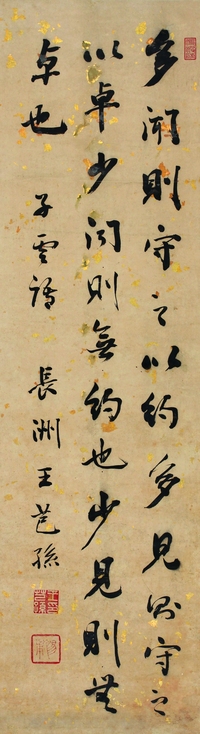 多聞則守之以約多見則守之
以卓少聞則無約也少見則無
卓也 子雲語 長洲王芑孫